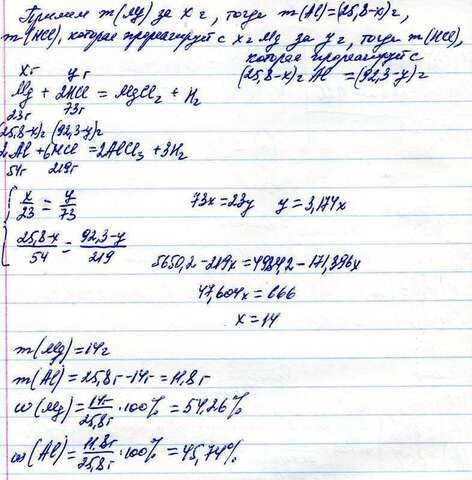 Примем m(Mg) за x г, тогда m(Al)=(25,8-x)г,
m(HCl), которая прореагирует с x г Mg за y г, тогда m(HCl),
которая прореагирует с
(25,8-x)г Al = (92,3-y)г
xг yг
Mg + 2HCl = MgCl2 + H2
23г 73г
(25,8-x)г (92,3-y)г
2Al + 6HCl = 2AlCl3 + 3H2
54г 219г
x/23 = y/73 73x = 23y y = 3,174x
25,8-x/54 = 92,3-y/219
5650,2-219x = 4984,2-171,396x
47,604x = 666
x = 14
m(Mg) = 14г
m(Al) = 25,8г - 14г = 11,8г
w(Mg) = 14г/25,8г · 100% = 54,26%
w(Al) = 11,8г/25,8г · 100% = 45,74%